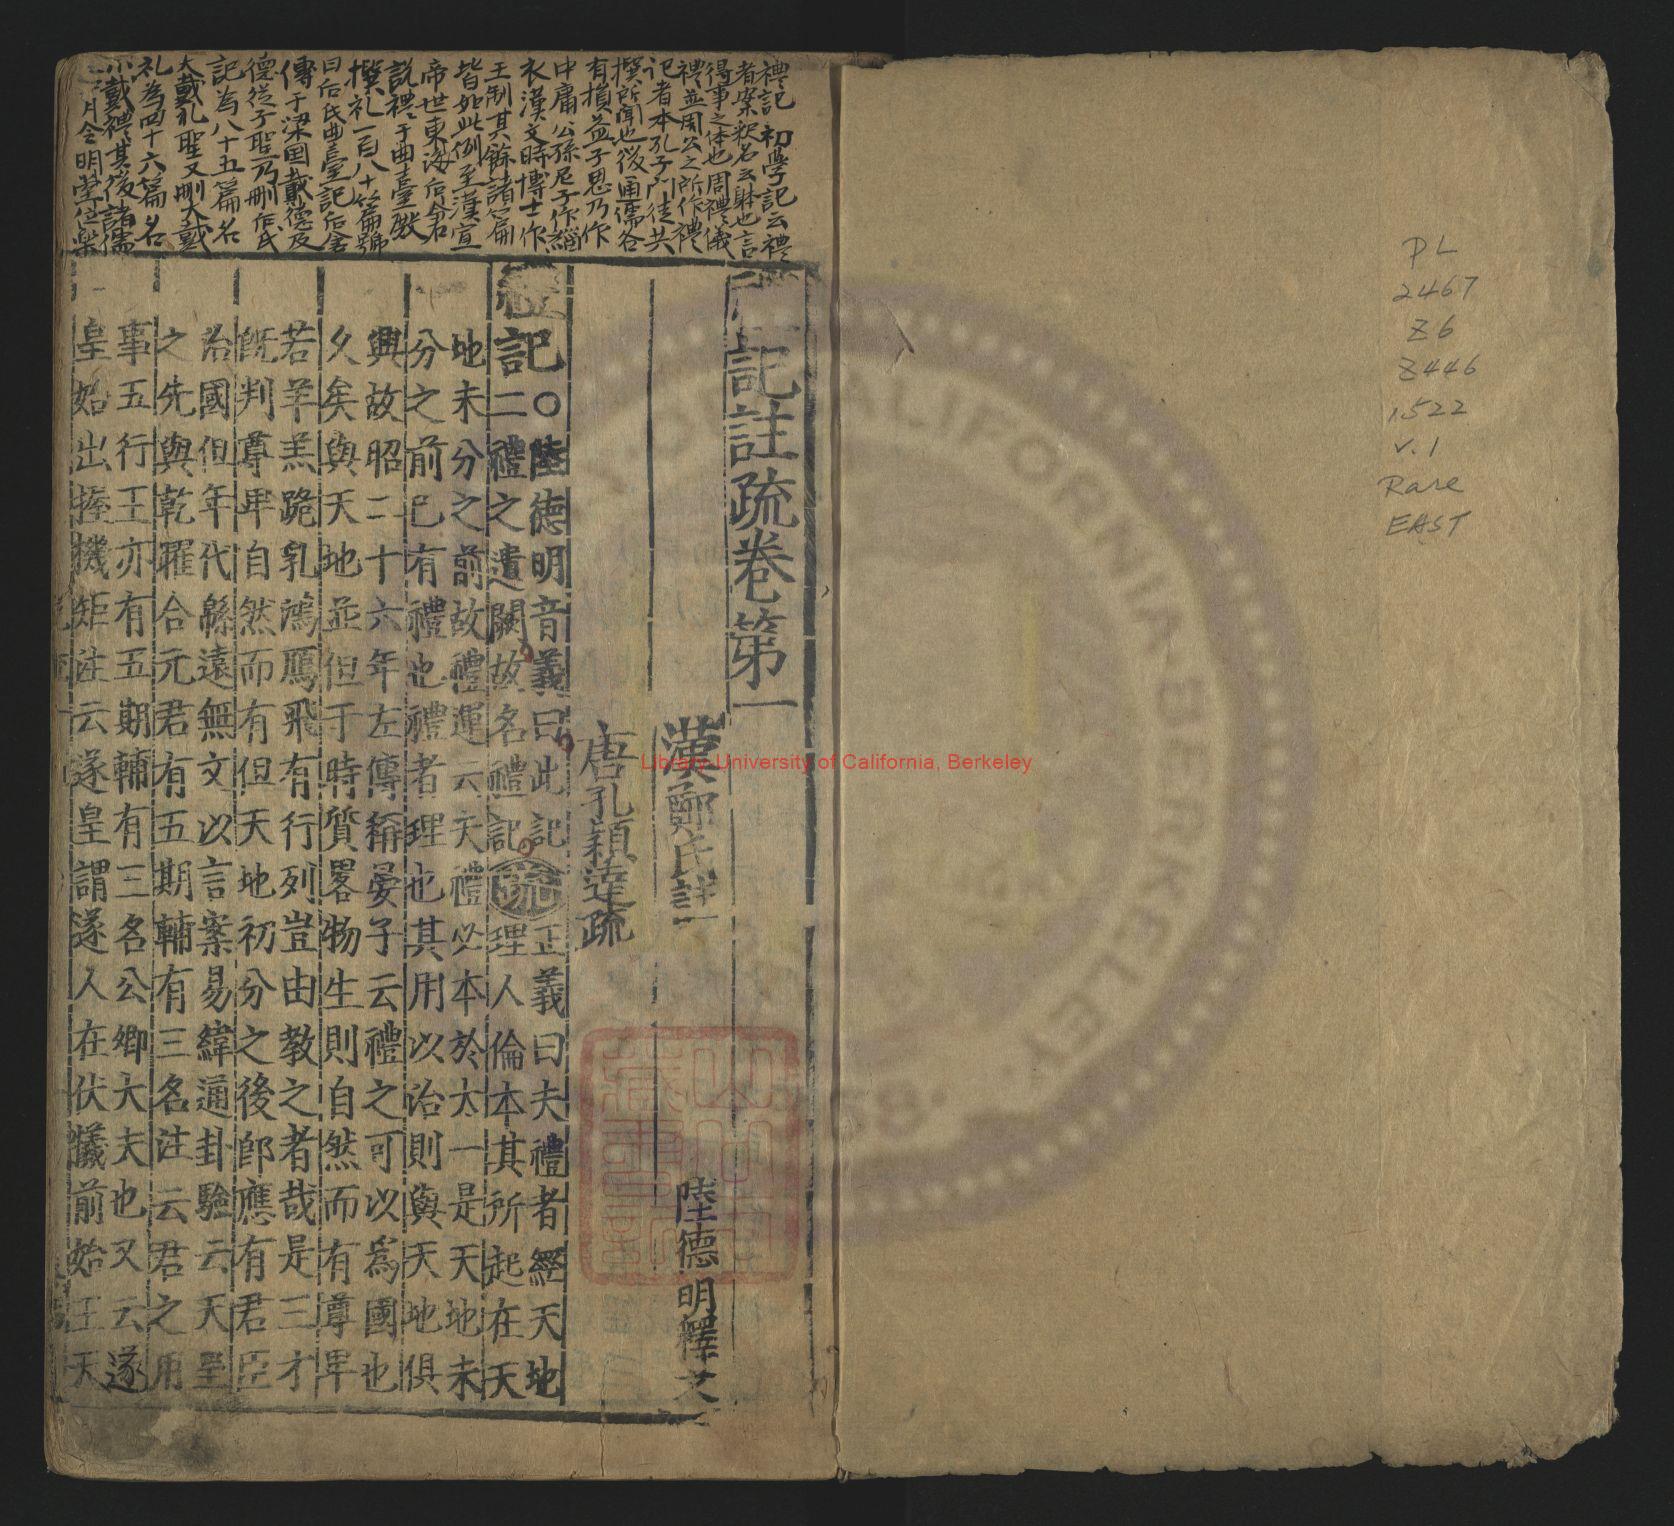 禮記初學記云禮
者案釈名云躰也言
得事之体也周禮儀
禮並周公之所作禮
記者本孔子門徒共
撰所聞也後通儒各
有損益子思乃作
中庸公孫尼子作緇
衣漢文時博士作
王制其餘諸篇
皆如此例至漢宣
帝世東海后倉
說禮于曲臺殿
撰礼一百八十篇號
曰后氏曲臺記后倉
傳于梁国戴德及
德從子聖乃刪后氏
記為八十五篇名
大戴礼聖又刪大戴
礼為四十六篇名
小戴禮其後諸儒
月令明堂位樂
禮記註疏卷第一
漢鄭氏註
陸德明釋文
唐孔穎達疏
禮記○陸德明音義曰此記
二禮之遺闕故名禮記
疏
正義曰夫禮者經天地
理人倫本其所起在天
地未分之前故禮運云夫禮必本於太一是天地未
分之前已有禮也禮者理也其用以治則與天地俱
興故昭二十六年左傳稱晏子云禮之可以為國也
久矣與天地並但于時質畧物生則自然而有尊卑
若羊羔跪乳鴻鴈飛有行列豈由教之者哉是三才
旣判尊卑自然而有但天地初分之後卽應有君臣
治國但年代緜遠無文以言案易緯通卦驗云天皇
之先與乾曜合元君有五期輔有三名注云君之用
事五行王亦有五期輔有三名公卿大夫也又云遂
皇始出握機矩注云遂皇謂遂人在伏犧前始王天
PL
2467
Z6
Z446
1522
v.1
Rare
EAST
Library University of California, Berkeley